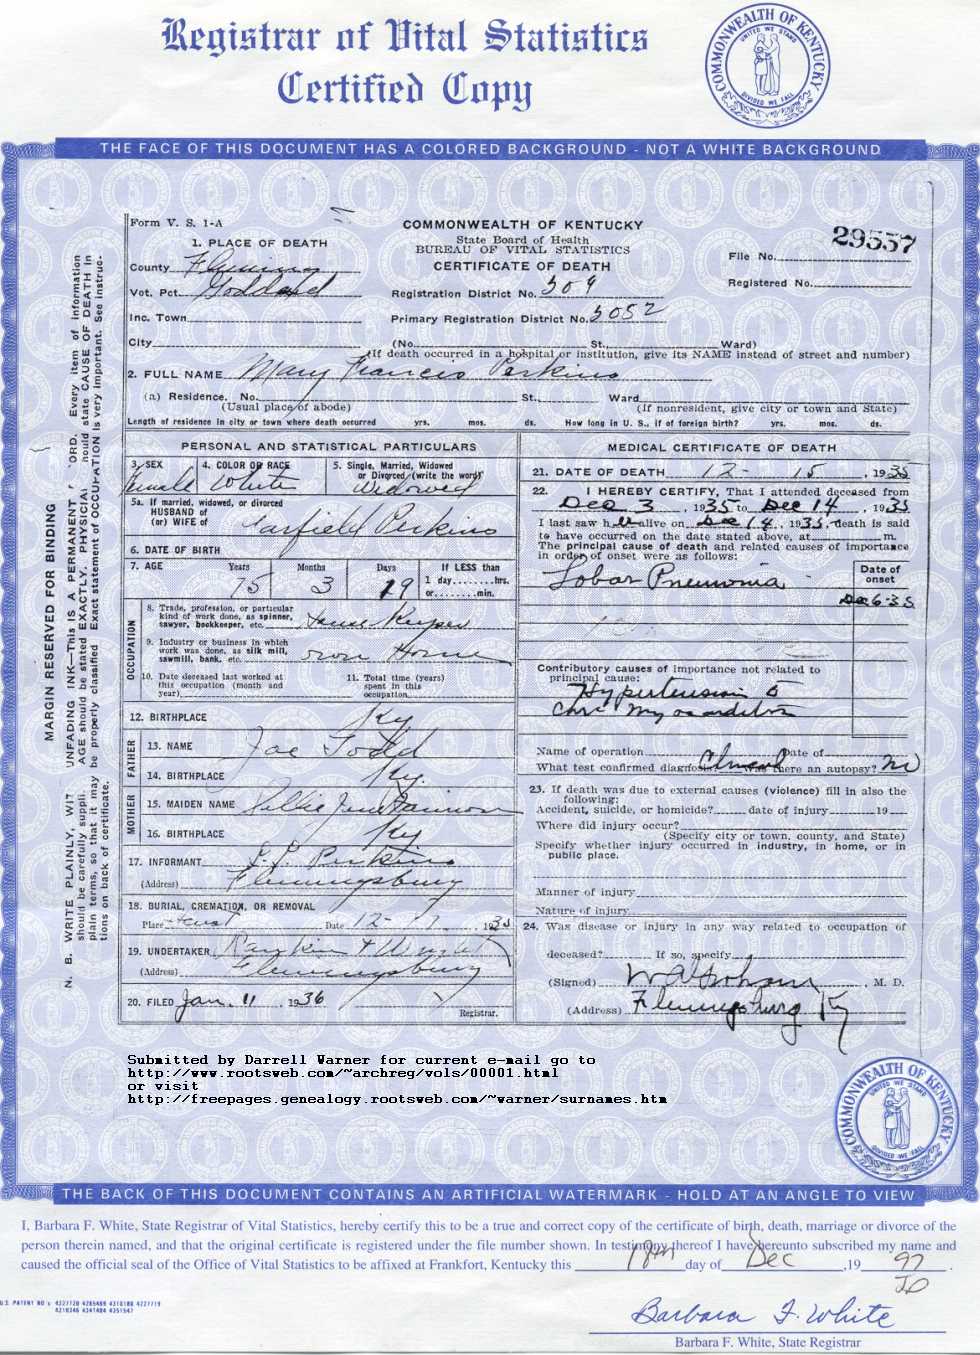 Registrar of Vital Statistics
Certified Copy
COMMONWEALTH OF KENTUCKY
UNITED WE STAND
DIVIDED WE FALL
THE FACE OF THIS DOCUMENT HAS A COLORED BACKGROUND - NOT A WHITE BACKGROUND
MARGIN RESERVED FOR BINDING
Form V. S. 1-A
COMMONWEALTH OF KENTUCKY
State Board of Health
BUREAU OF VITAL STATISTICS
CERTIFICATE OF DEATH
29557
File No.
Registered No.
1. PLACE OF DEATH
County Fleming
Vot. Pct. Goddard
Registration District No. 509
Inc. Town
Primary Registration District No. 5052
City (No. St., Ward)
(If death occurred in a hospital or institution, give its NAME instead of street and number)
2. FULL NAME Mary Francis Perkins
(a) Residence. No. St., Ward
(Usual place of abode) (If nonresident, give city or town and State)
Length of residence in city or town where death occurred yrs. mos. ds. How long in U. S., if of foreign birth? yrs. mos. ds.
PERSONAL AND STATISTICAL PARTICULARS
3. SEX Female
4. COLOR OR RACE White
5. Single, Married, Widowed or Divorced (write the word) Widowed
5a. If married, widowed, or divorced
HUSBAND of
(or) WIFE of Garfield Perkins
6. DATE OF BIRTH
7. AGE Years 75 Months 3 Days 19
If LESS than
1 day........hrs.
or........min.
OCCUPATION
8. Trade, profession, or particular
kind of work done, as spinner,
sawyer, bookkeeper, etc. House Keeper
9. Industry or business in which
work was done, as silk mill,
sawmill, bank, etc. own Home
10. Date deceased last worked at
this occupation (month and
year)
11. Total time (years)
spent in this
occupation
12. BIRTHPLACE Ky
FATHER
13. NAME Joe Todd
14. BIRTHPLACE Ky.
MOTHER
15. MAIDEN NAME Jane
16. BIRTHPLACE Ky
17. INFORMANT Perkins
(Address) Flemingsburg
18. BURIAL, CREMATION, OR REMOVAL
Place Date 12- 17 1935
19. UNDERTAKER Rankin + Wright
(Address) Flemingsburg
20. FILED Jan. 11, 1936
Registrar.
MEDICAL CERTIFICATE OF DEATH
21. DATE OF DEATH 12- 15, 1935
22. I HEREBY CERTIFY, That I attended deceased from
Dec 3, 1935 to Dec 14, 1935
I last saw her alive on Dec 14, 1935, death is said
to have occurred on the date stated above, at m.
The principal cause of death and related causes of importance
in order of onset were as follows:
Date of
onset
Lobar Pneumonia Dec 6-35
Contributory causes of importance not related to
principal cause:
Hypertension
Myocarditis
Name of operation Date of
What test confirmed diagnosis? Clinical Was there an autopsy? No
23. If death was due to external causes (violence) fill in also the
following:
Accident, suicide, or homicide? date of injury 19
Where did injury occur?
(Specify city or town, county, and State)
Specify whether injury occurred in industry, in home, or in
public place.
Manner of injury
Nature of injury
24. Was disease or injury in any way related to occupation of
deceased? If so, specify
(Signed) M. D.
(Address) Flemingsburg Ky
Submitted by Darrell Warner for current e-mail go to
http://www.rootsweb.com/~archreg/vols/00001.html
or visit
http://freepages.genealogy.rootsweb.com/~warner/surnames.htm
COMMONWEALTH OF KENTUCKY
UNITED WE STAND
DIVIDED WE FALL
THE BACK OF THIS DOCUMENT CONTAINS AN ARTIFICIAL WATERMARK - HOLD AT AN ANGLE TO VIEW
I, Barbara F. White, State Registrar of Vital Statistics, hereby certify this to be a true and correct copy of the certificate of birth, death, marriage or divorce of the
person therein named, and that the original certificate is registered under the file number shown. In testimony thereof I have hereunto subscribed my name and
caused the official seal of the Office of Vital Statistics to be affixed at Frankfort, Kentucky this 18th day of Dec ,19 97.
Barbara F. White
Barbara F. White, State Registrar